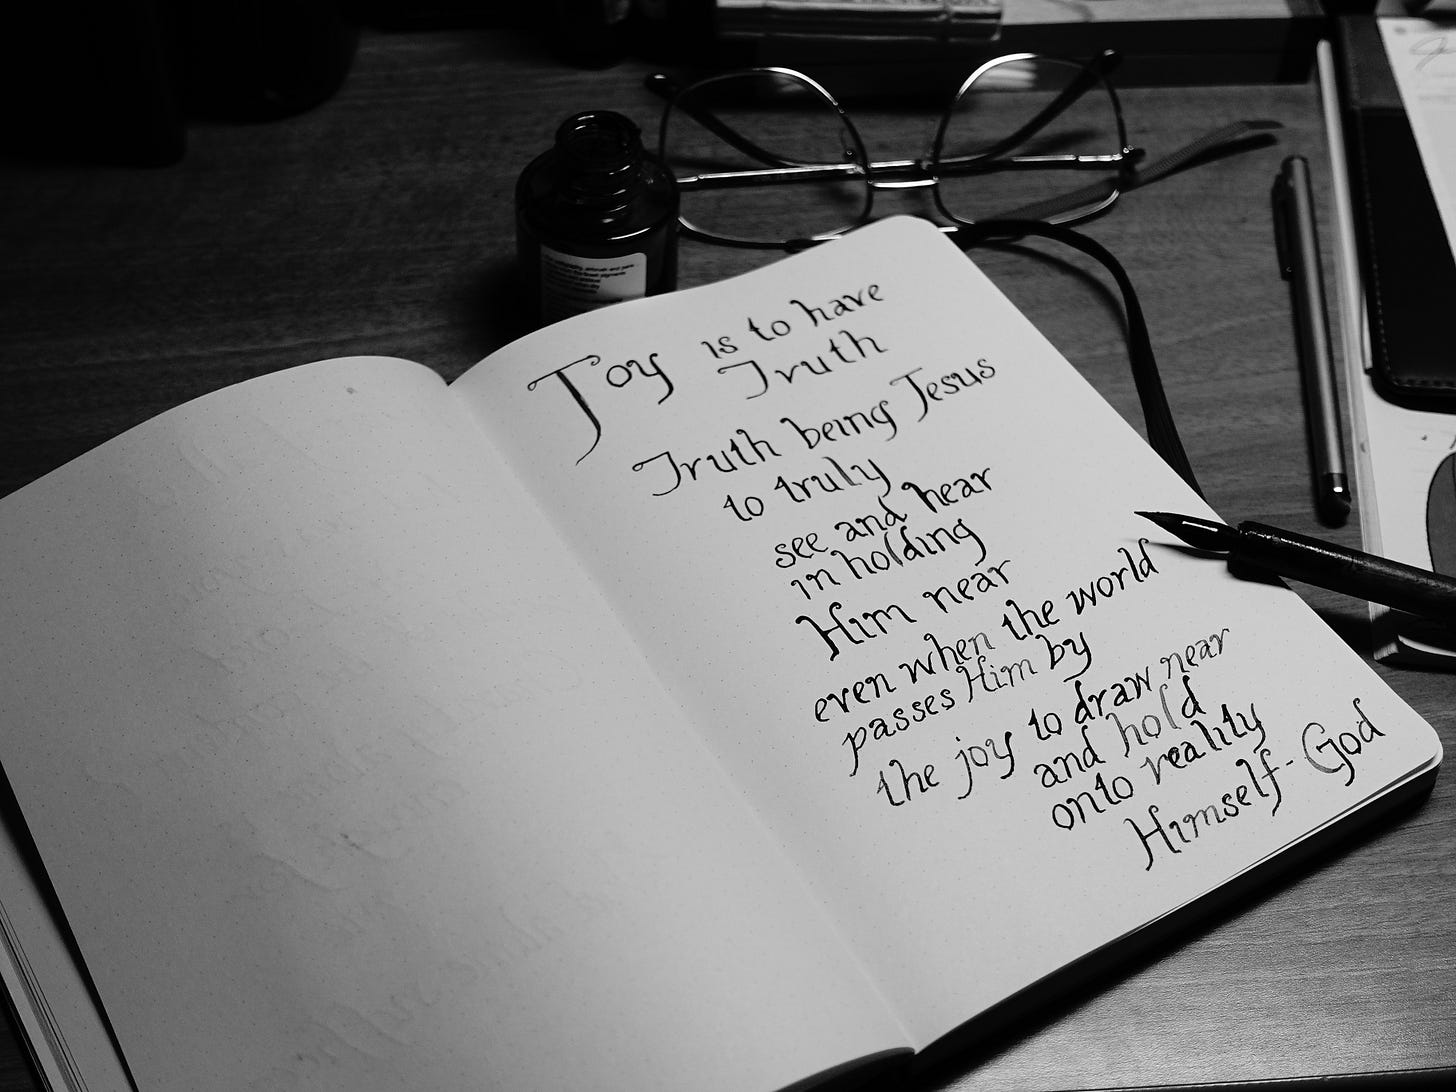 Joy is to have
Truth
Truth being Jesus
to truly
see and hear
in holding
Him near
even when the world
passes Him by
the joy to draw near
and hold
onto reality
Himself - God